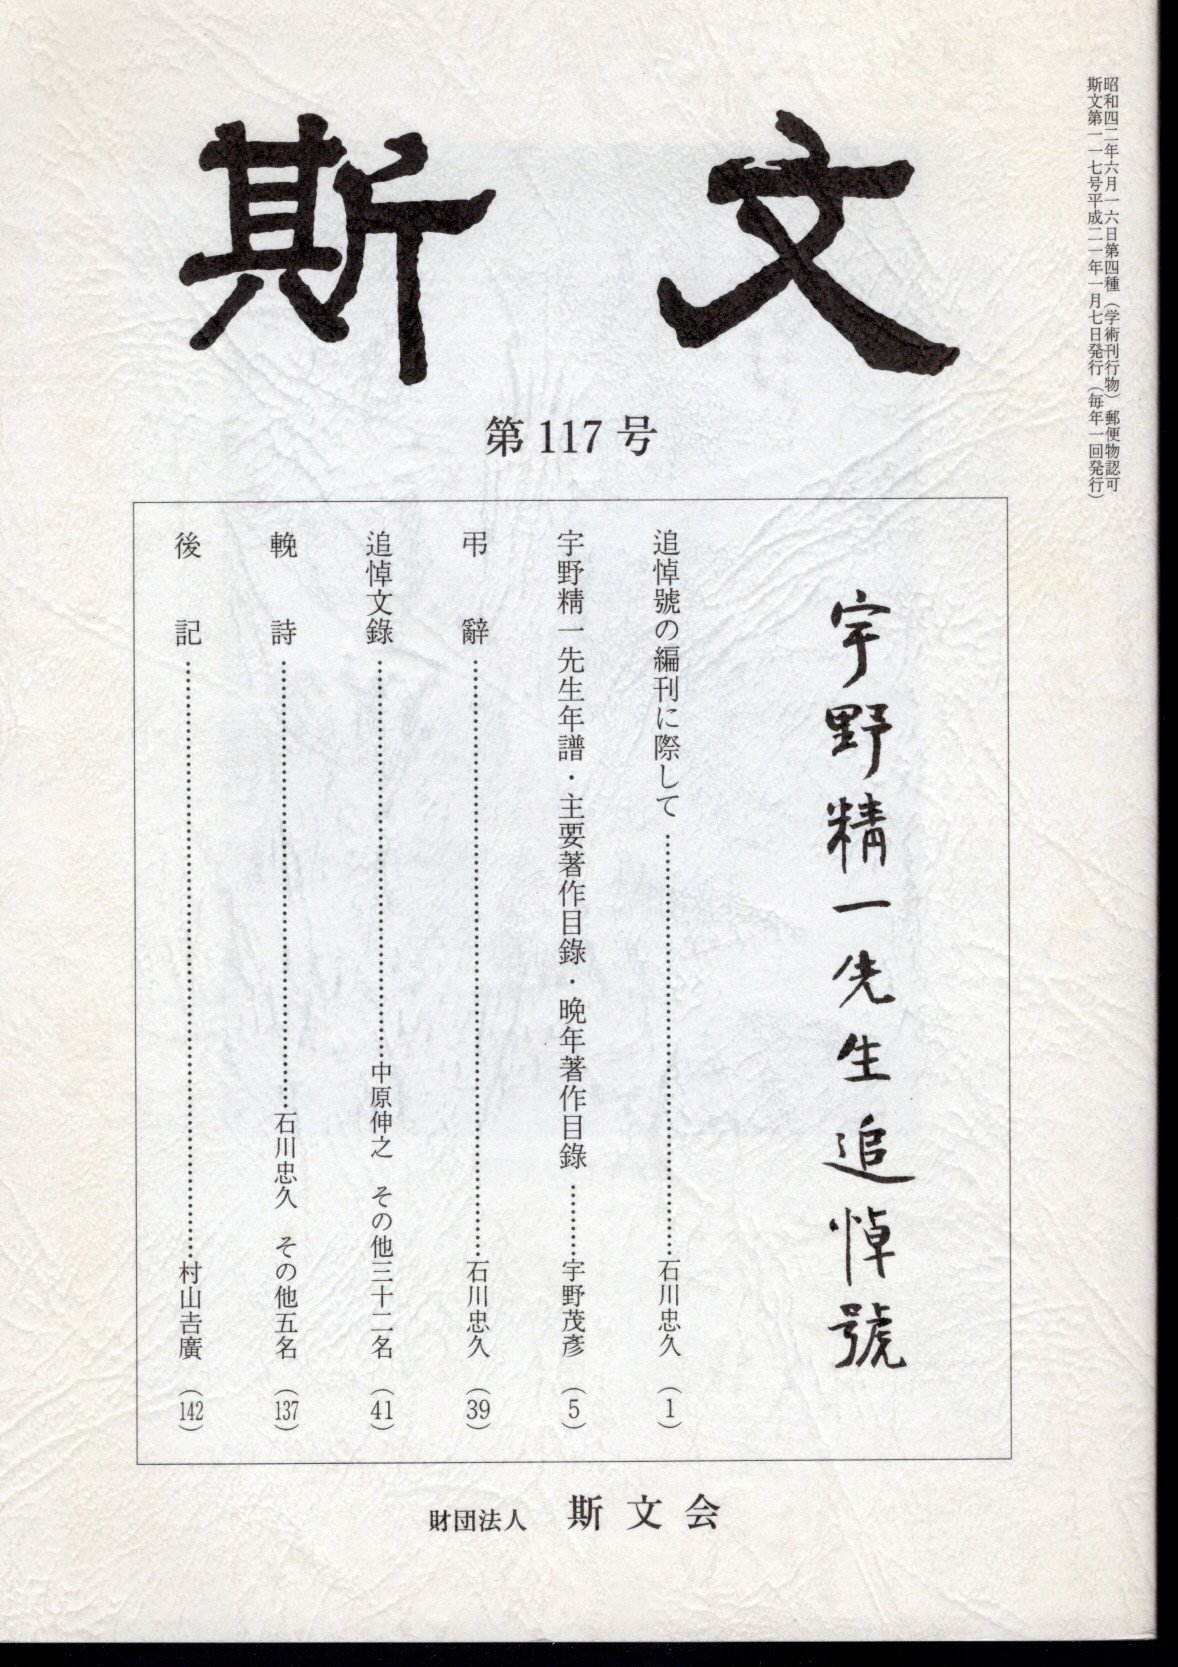 昭和四二年六月一六日第四種（学術刊行物）郵便物認可
斯文第一一七号平成二一年一月七日発行（毎年一回発行）
斯文
第117号
宇野精一先生追悼號
追悼號の編刊に際して……石川忠久（1）
宇野精一先生年譜・主要著作目錄・晩年著作目錄……宇野茂彥（5）
弔辭……石川忠久（39）
追悼文錄……中原伸之 その他三十二名（41）
輓詩……石川忠久 その他五名（137）
後記……村山吉廣（142）
財団法人 斯文会